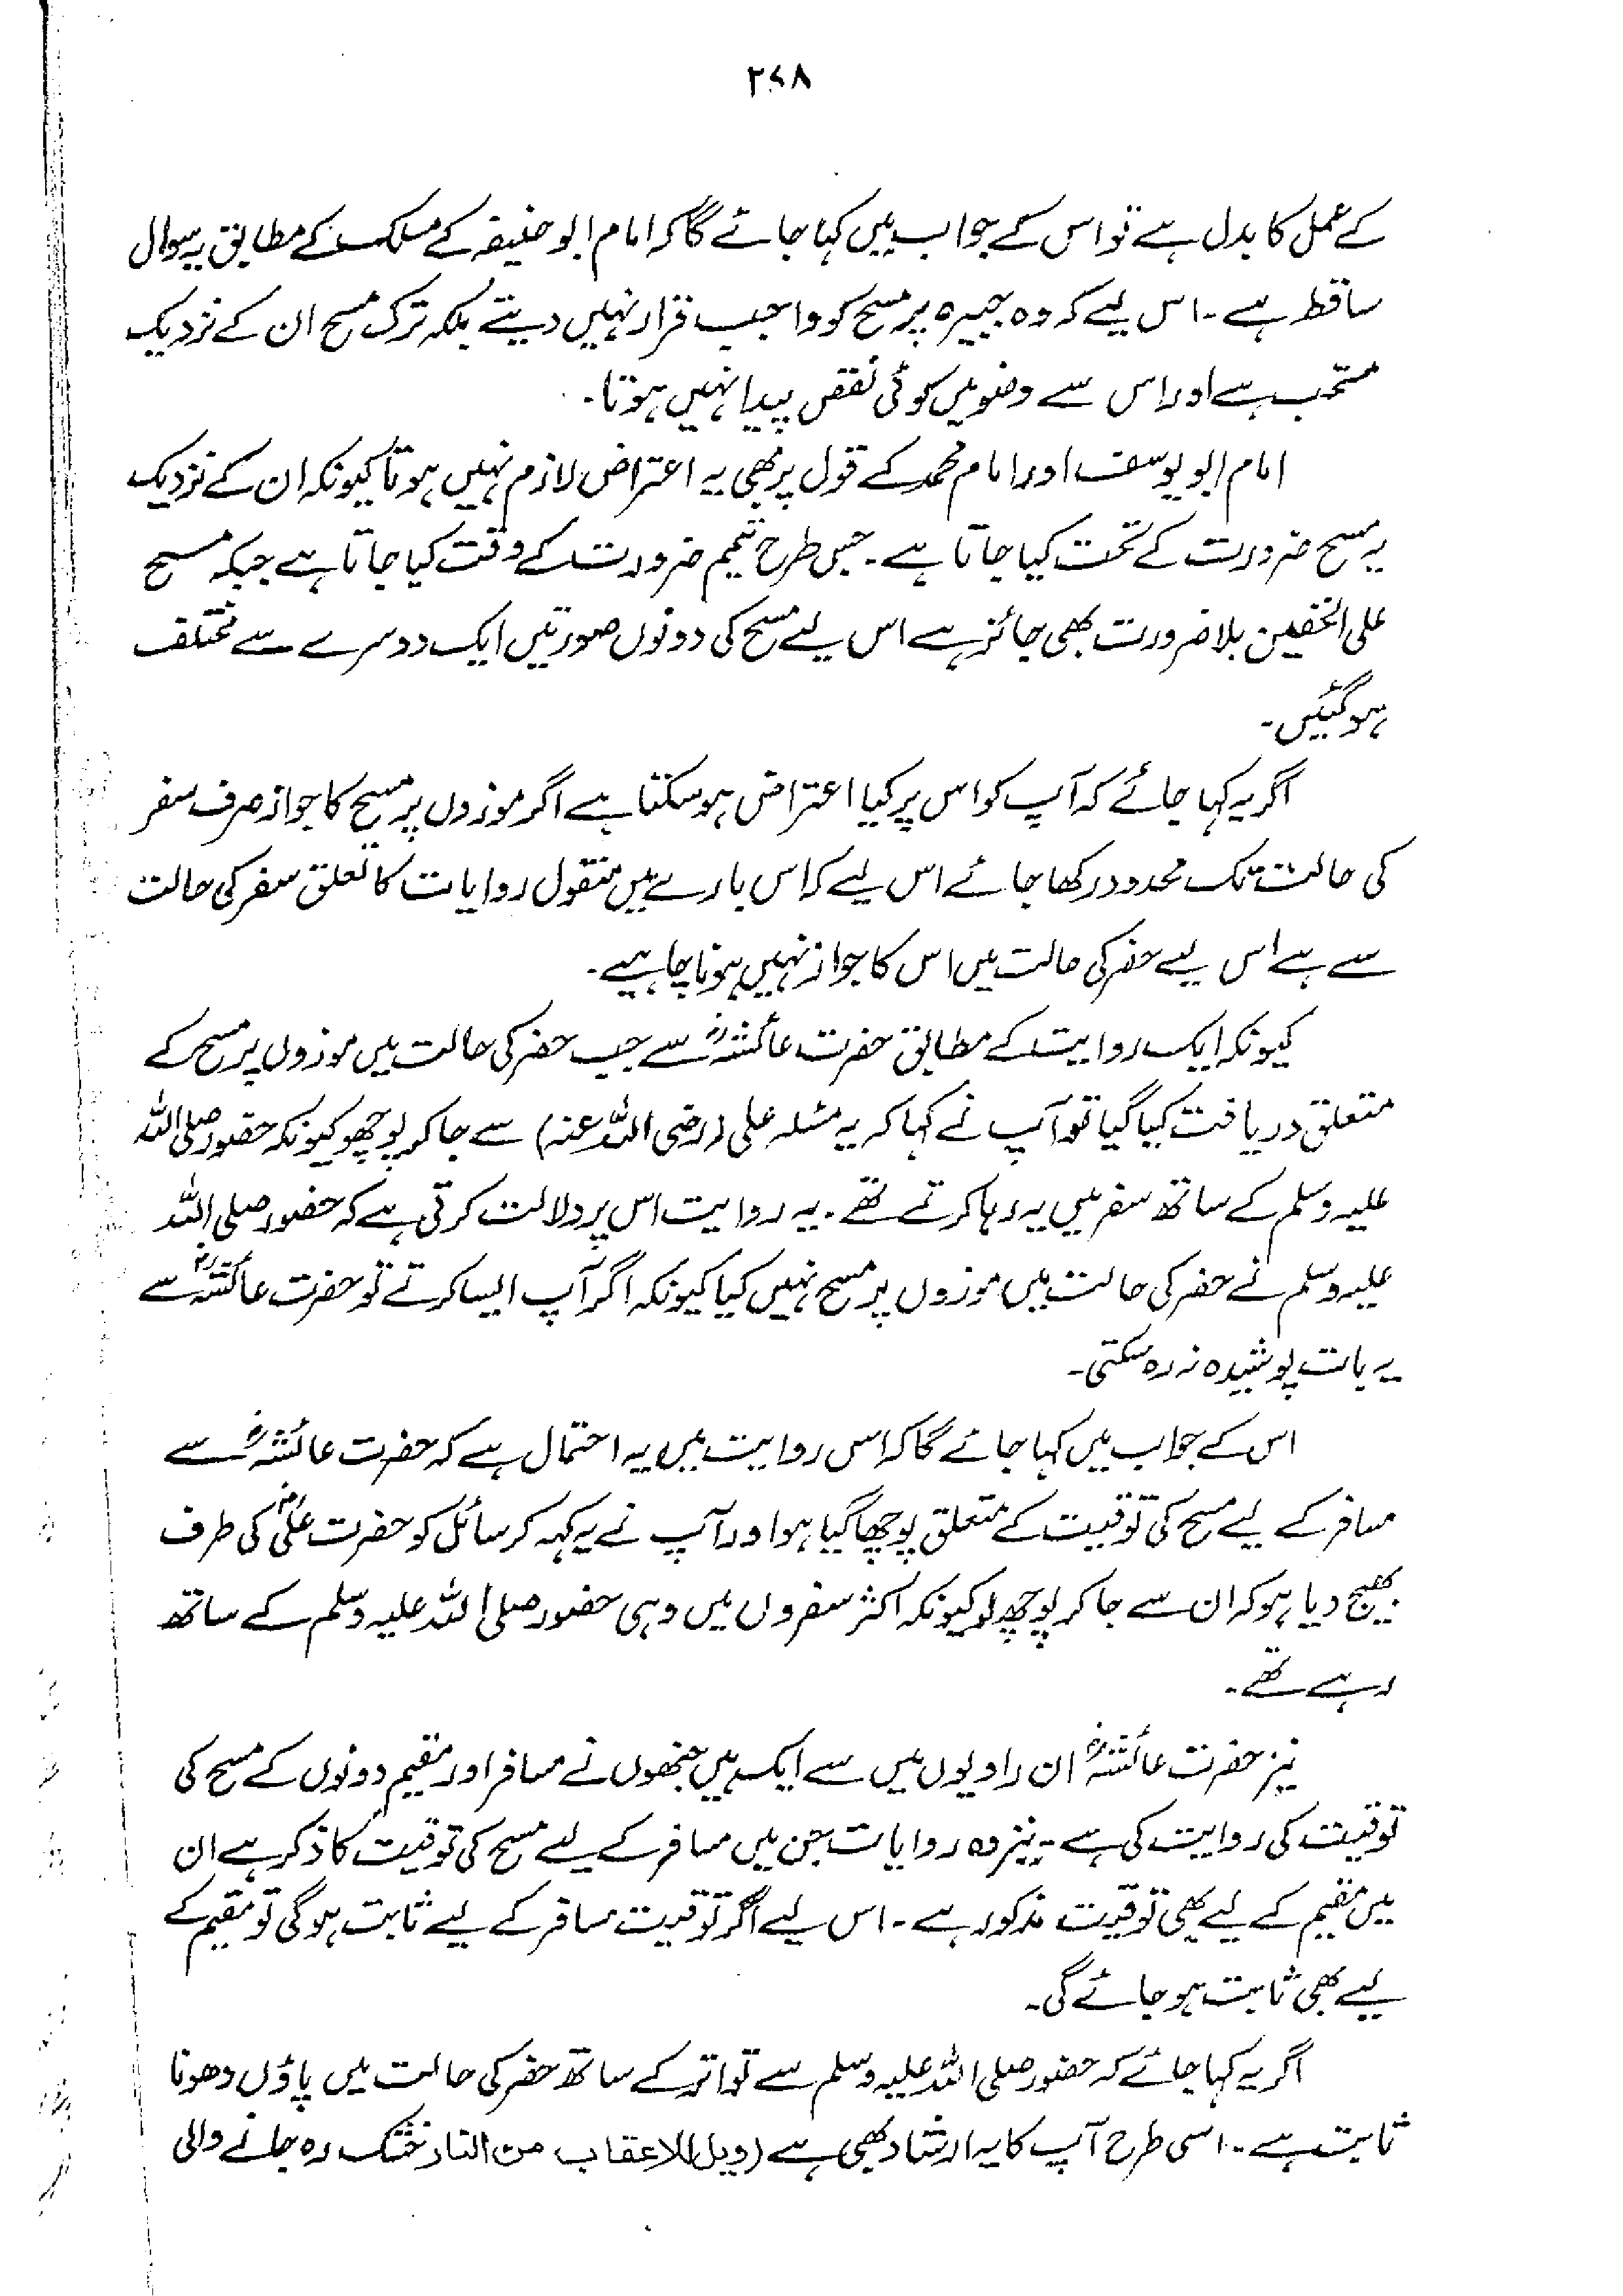 ۲۷۸
کے عمل کا بدل ہے تو اس کے جواب میں کہا جائے گا کہ امام ابو حنیفہ کے مسلک کے مطابق یہ سوال
ساقط ہے۔ اس لیے کہ وہ جبیرہ پر مسح کو واجب قرار نہیں دیتے بلکہ ترک مسح ان کے نزدیک
مستحب ہے اور اس سے وضو میں کوئی نقص پیدا نہیں ہوتا۔
امام ابو یوسف اور امام محمد کے قول پر بھی یہ اعتراض لازم نہیں ہوتا کیونکہ ان کے نزدیک
یہ مسح ضرورت کے تحت کیا جاتا ہے۔ جس طرح تیمم ضرورت کے وقت کیا جاتا ہے جبکہ مسح
علی الخفین بلا ضرورت بھی جائز ہے اس لیے مسح کی دونوں صورتیں ایک دوسرے سے مختلف
ہوگئیں۔
اگر یہ کہا جائے کہ آپ کو اس پر کیا اعتراض ہوسکتا ہے اگر موزوں پر مسح کا جواز صرف سفر
کی حالت تک محدود رکھا جائے اس لیے کہ اس بارے میں منقول روایات کا تعلق سفر کی حالت
سے ہے اس لیے حضر کی حالت میں اس کا جواز نہیں ہونا چاہیے۔
کیونکہ ایک روایت کے مطابق حضرت عائشہؓ سے جب حضر کی حالت میں موزوں پر مسح کے
متعلق دریافت کیا گیا تو آپ نے کہا کہ یہ مسئلہ علی (رضی اللہ عنہ) سے جا کر پوچھو کیونکہ حضور صلی اللہ
علیہ وسلم کے ساتھ سفر میں یہ رہا کرتے تھے۔ یہ روایت اس پر دلالت کرتی ہے کہ حضور صلی اللہ
علیہ وسلم نے حضر کی حالت میں موزوں پر مسح نہیں کیا کیونکہ اگر آپ ایسا کرتے تو حضرت عائشہؓ سے
یہ بات پوشیدہ نہ رہ سکتی۔
اس کے جواب میں کہا جائے گا کہ اس روایت میں یہ احتمال ہے کہ حضرت عائشہؓ سے
مسافر کے لیے مسح کی توقیت کے متعلق پوچھا گیا ہو اور آپ نے یہ کہہ کر سائل کو حضرت علیؓ کی طرف
بھیج دیا ہو کہ ان سے جا کر پوچھ لو کیونکہ اکثر سفروں میں وہی حضور صلی اللہ علیہ وسلم کے ساتھ
رہے تھے۔
نیز حضرت عائشہؓ ان راویوں میں سے ایک ہیں جنھوں نے مسافر اور مقیم دونوں کے مسح کی
توقیت کی روایت کی ہے۔ نیز وہ روایات جن میں مسافر کے لیے مسح کی توقیت کا ذکر ہے ان
میں مقیم کے لیے بھی توقیت مذکور ہے۔ اس لیے اگر توقیت مسافر کے لیے ثابت ہوگی تو مقیم کے
لیے بھی ثابت ہو جائے گی۔
اگر یہ کہا جائے کہ حضور صلی اللہ علیہ وسلم سے تواتر کے ساتھ حضر کی حالت میں پاؤں دھونا
ثابت ہے۔ اسی طرح آپ کا یہ ارشاد بھی ہے (ویل للاعقاب من النار خشک رہ جانے والی